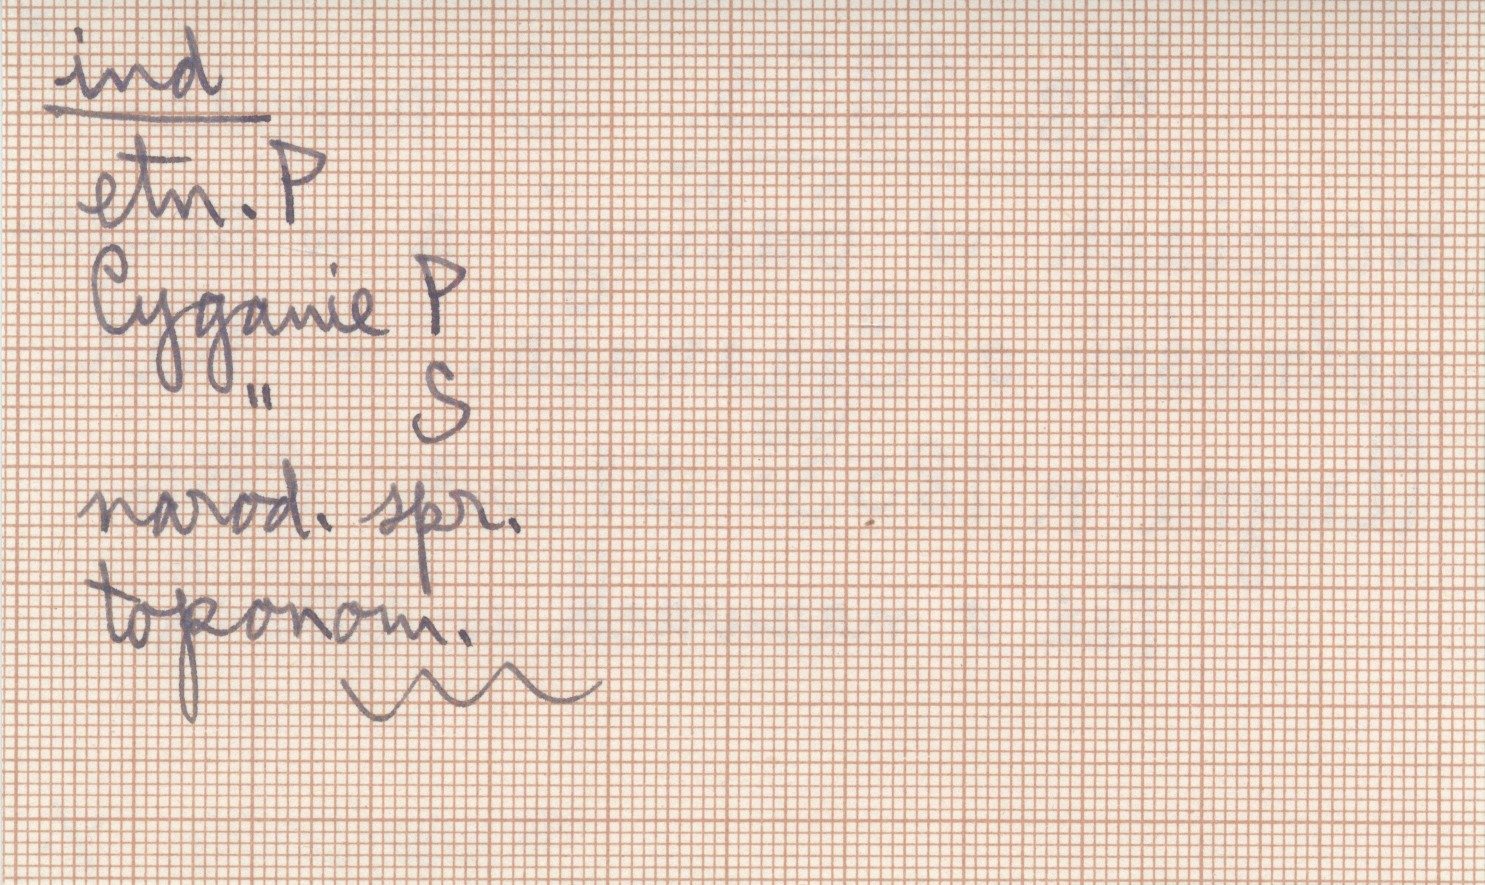 ind
etn. P
Cyganie P
" S
narod. spr.
toponom.